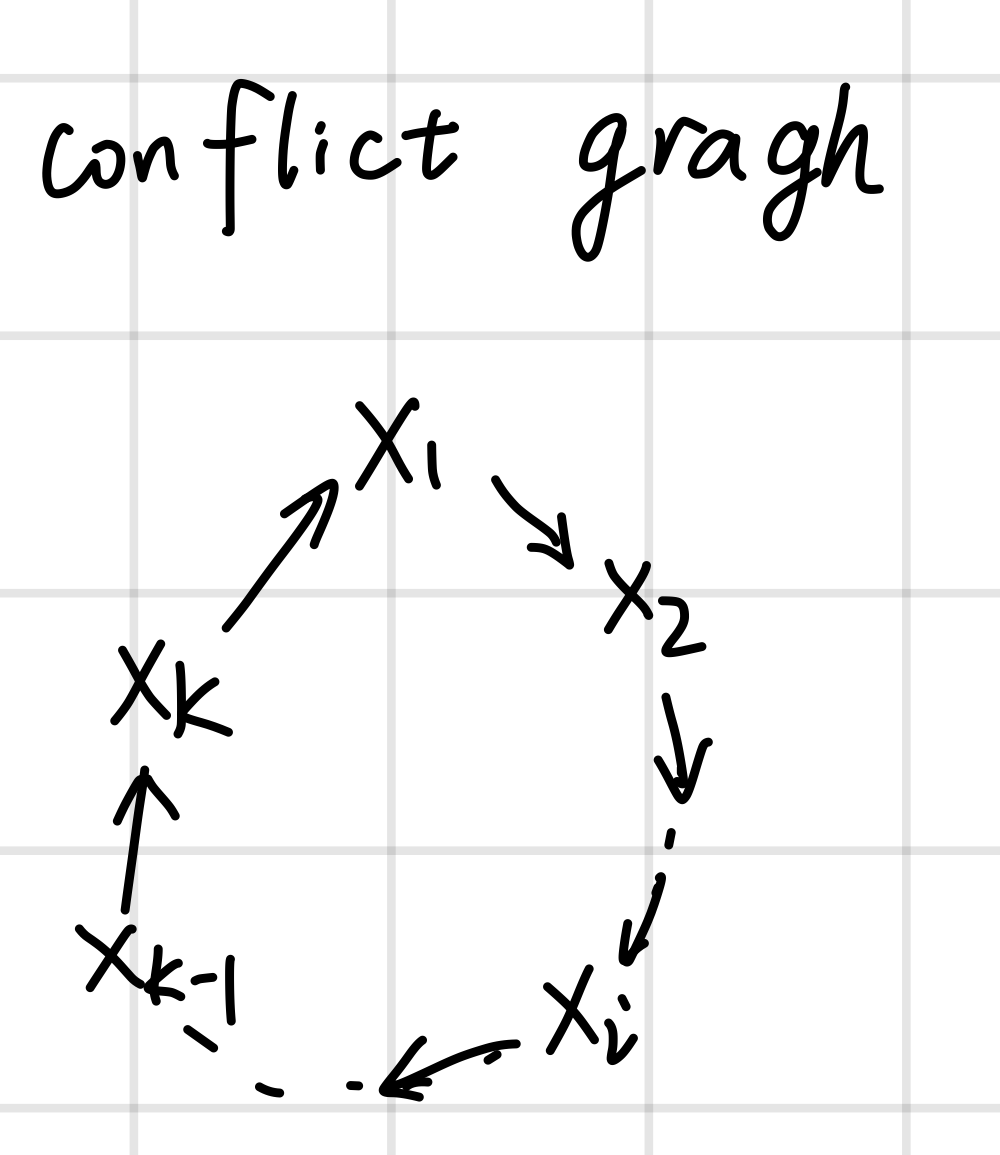 conflict gragh
X1
X2
XK
XK-1
Xi